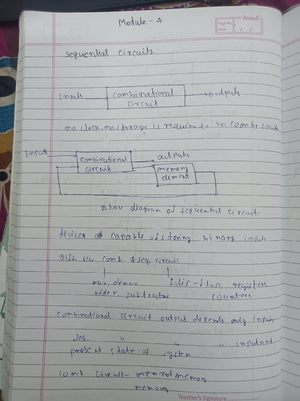 Module - 4
sequential circuits
Inputs combinational circuit outputs
no clock, no storage is required in comb. ckt
Inputs combinational circuit outputs
memory element
Block diagram of sequential circuit
devices capable of storing binary
diff b/w comb & seq. circuit
mux, demux
adder, subtractor
registers
counters
combinational circuit output depends only inputs
seq. " " " input and
present state of system
comb circuit -
memory
Teacher's Signature